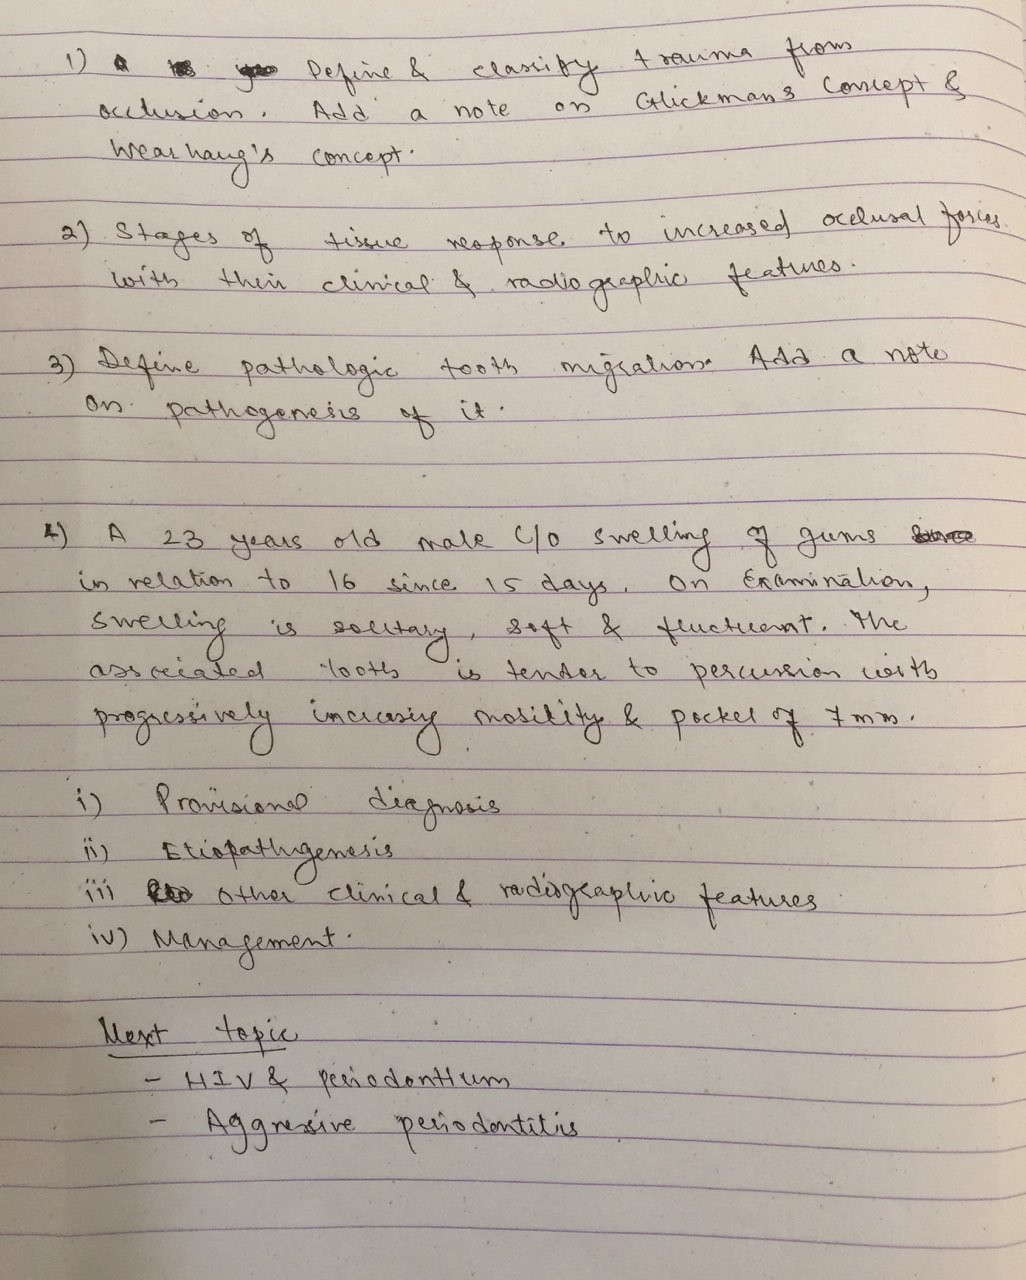 1) Define & classify trauma from
occlusion. Add a note on Glickmans Concept &
Wearhaug's concept.
2) Stages of tissue response to increased occlusal forces
with their clinical & radiographic features.
3) Define pathologic tooth migration. Add a note
on pathogenesis of it.
4) A 23 years old male C/O swelling of gums
in relation to 16 since 15 days. On Examination,
swelling is solitary, soft & fluctuent. The
associated tooth is tender to percussion with
progressively increasing mobility & pocket of 7mm.
i) Provisional diagnosis
ii) Etiopathogenesis
iii) other clinical & radiographic features
iv) Management.
Next topic
- HIV & periodontium
- Aggressive periodontitis